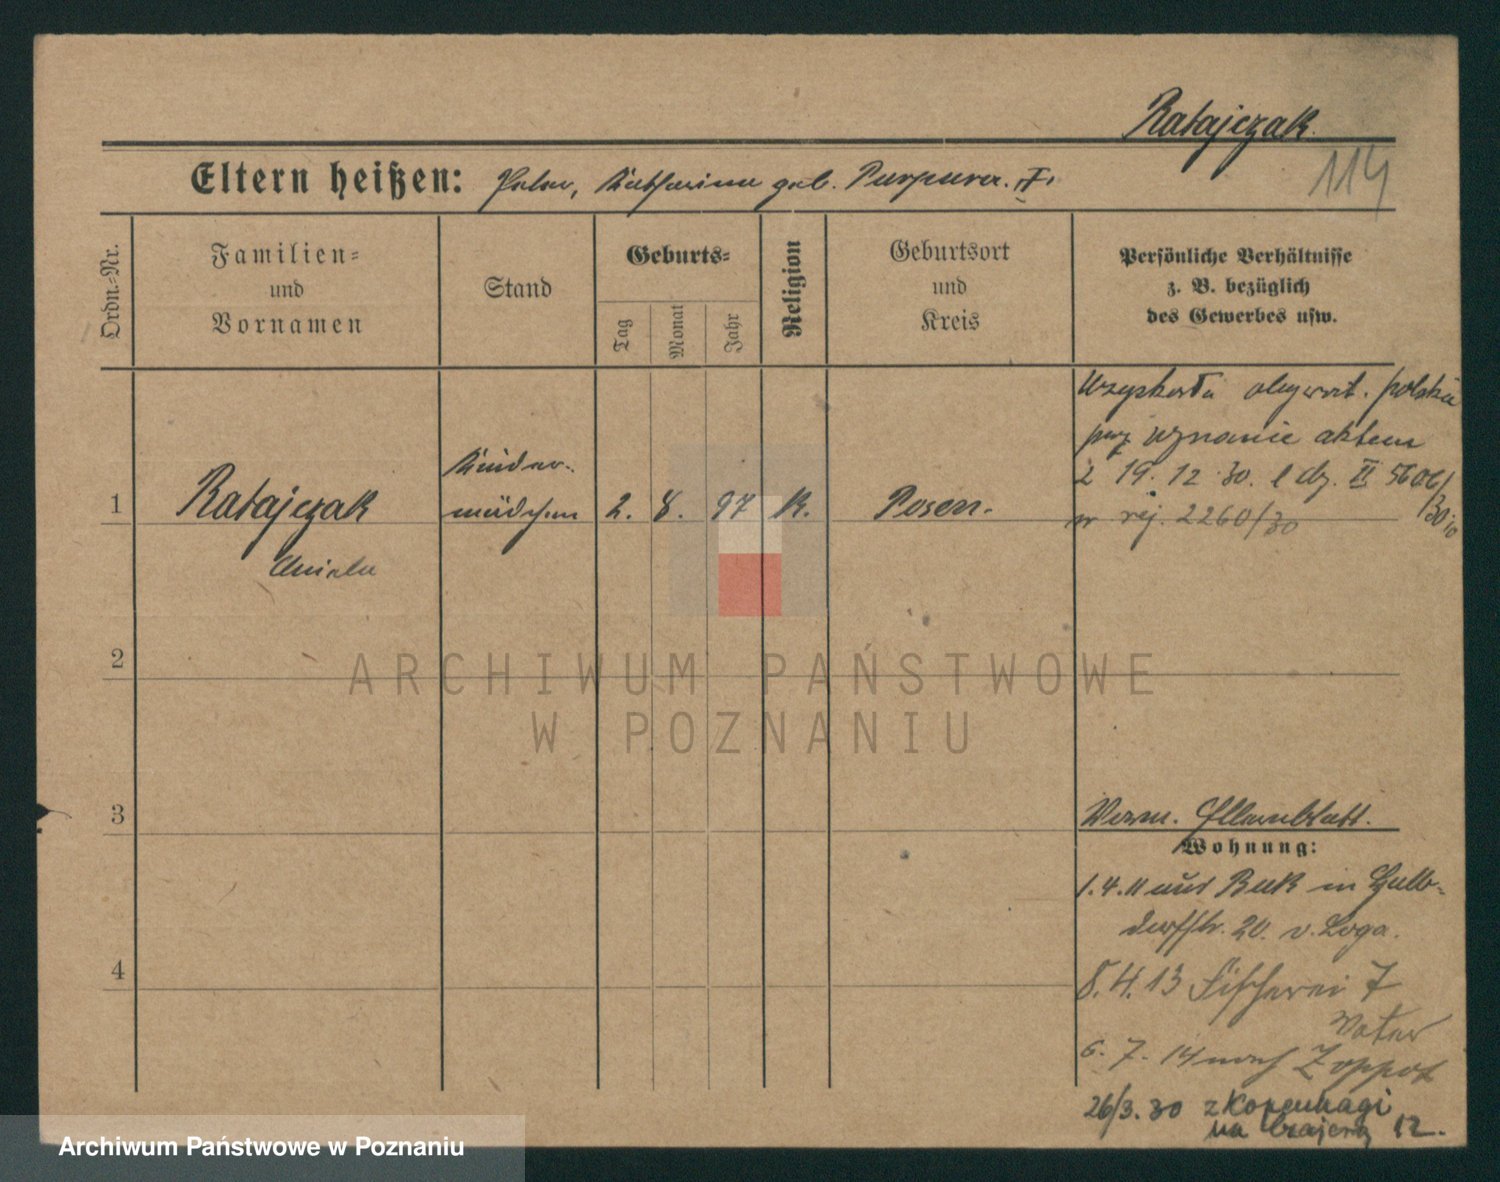 Ratajczak.
114
Eltern heißen: Peter, Katharina geb. Purpurra. F.
Ordn.-Nr.
Familien-
und
Vornamen
Stand
Geburts-
Tag
Monat
Jahr
Religion
Geburtsort
und
Kreis
Persönliche Verhältnisse
z. B. bezüglich
des Gewerbes usw.
Uzyskała obywat. polskie
przez uznanie aktem
z 19. 12 30. l dz. II 5606/30
nr rej. 2260/30
Kinder-
1 Ratajczak mädchen 2. 8. 97 K. Posen.
Aniela
2
ARCHIWUM PAŃSTWOWE
W POZNANIU
3
Verm. Elternblatt.
Wohnung:
1.4.11 aus Buk in
dorffstr. 20. v. Loga.
4
8.4.13 Fischerei 7
Vater
6. 7. 14 nach Zoppot
26/3. 30 z Kopenhagi
na 12.
Archiwum Państwowe w Poznaniu